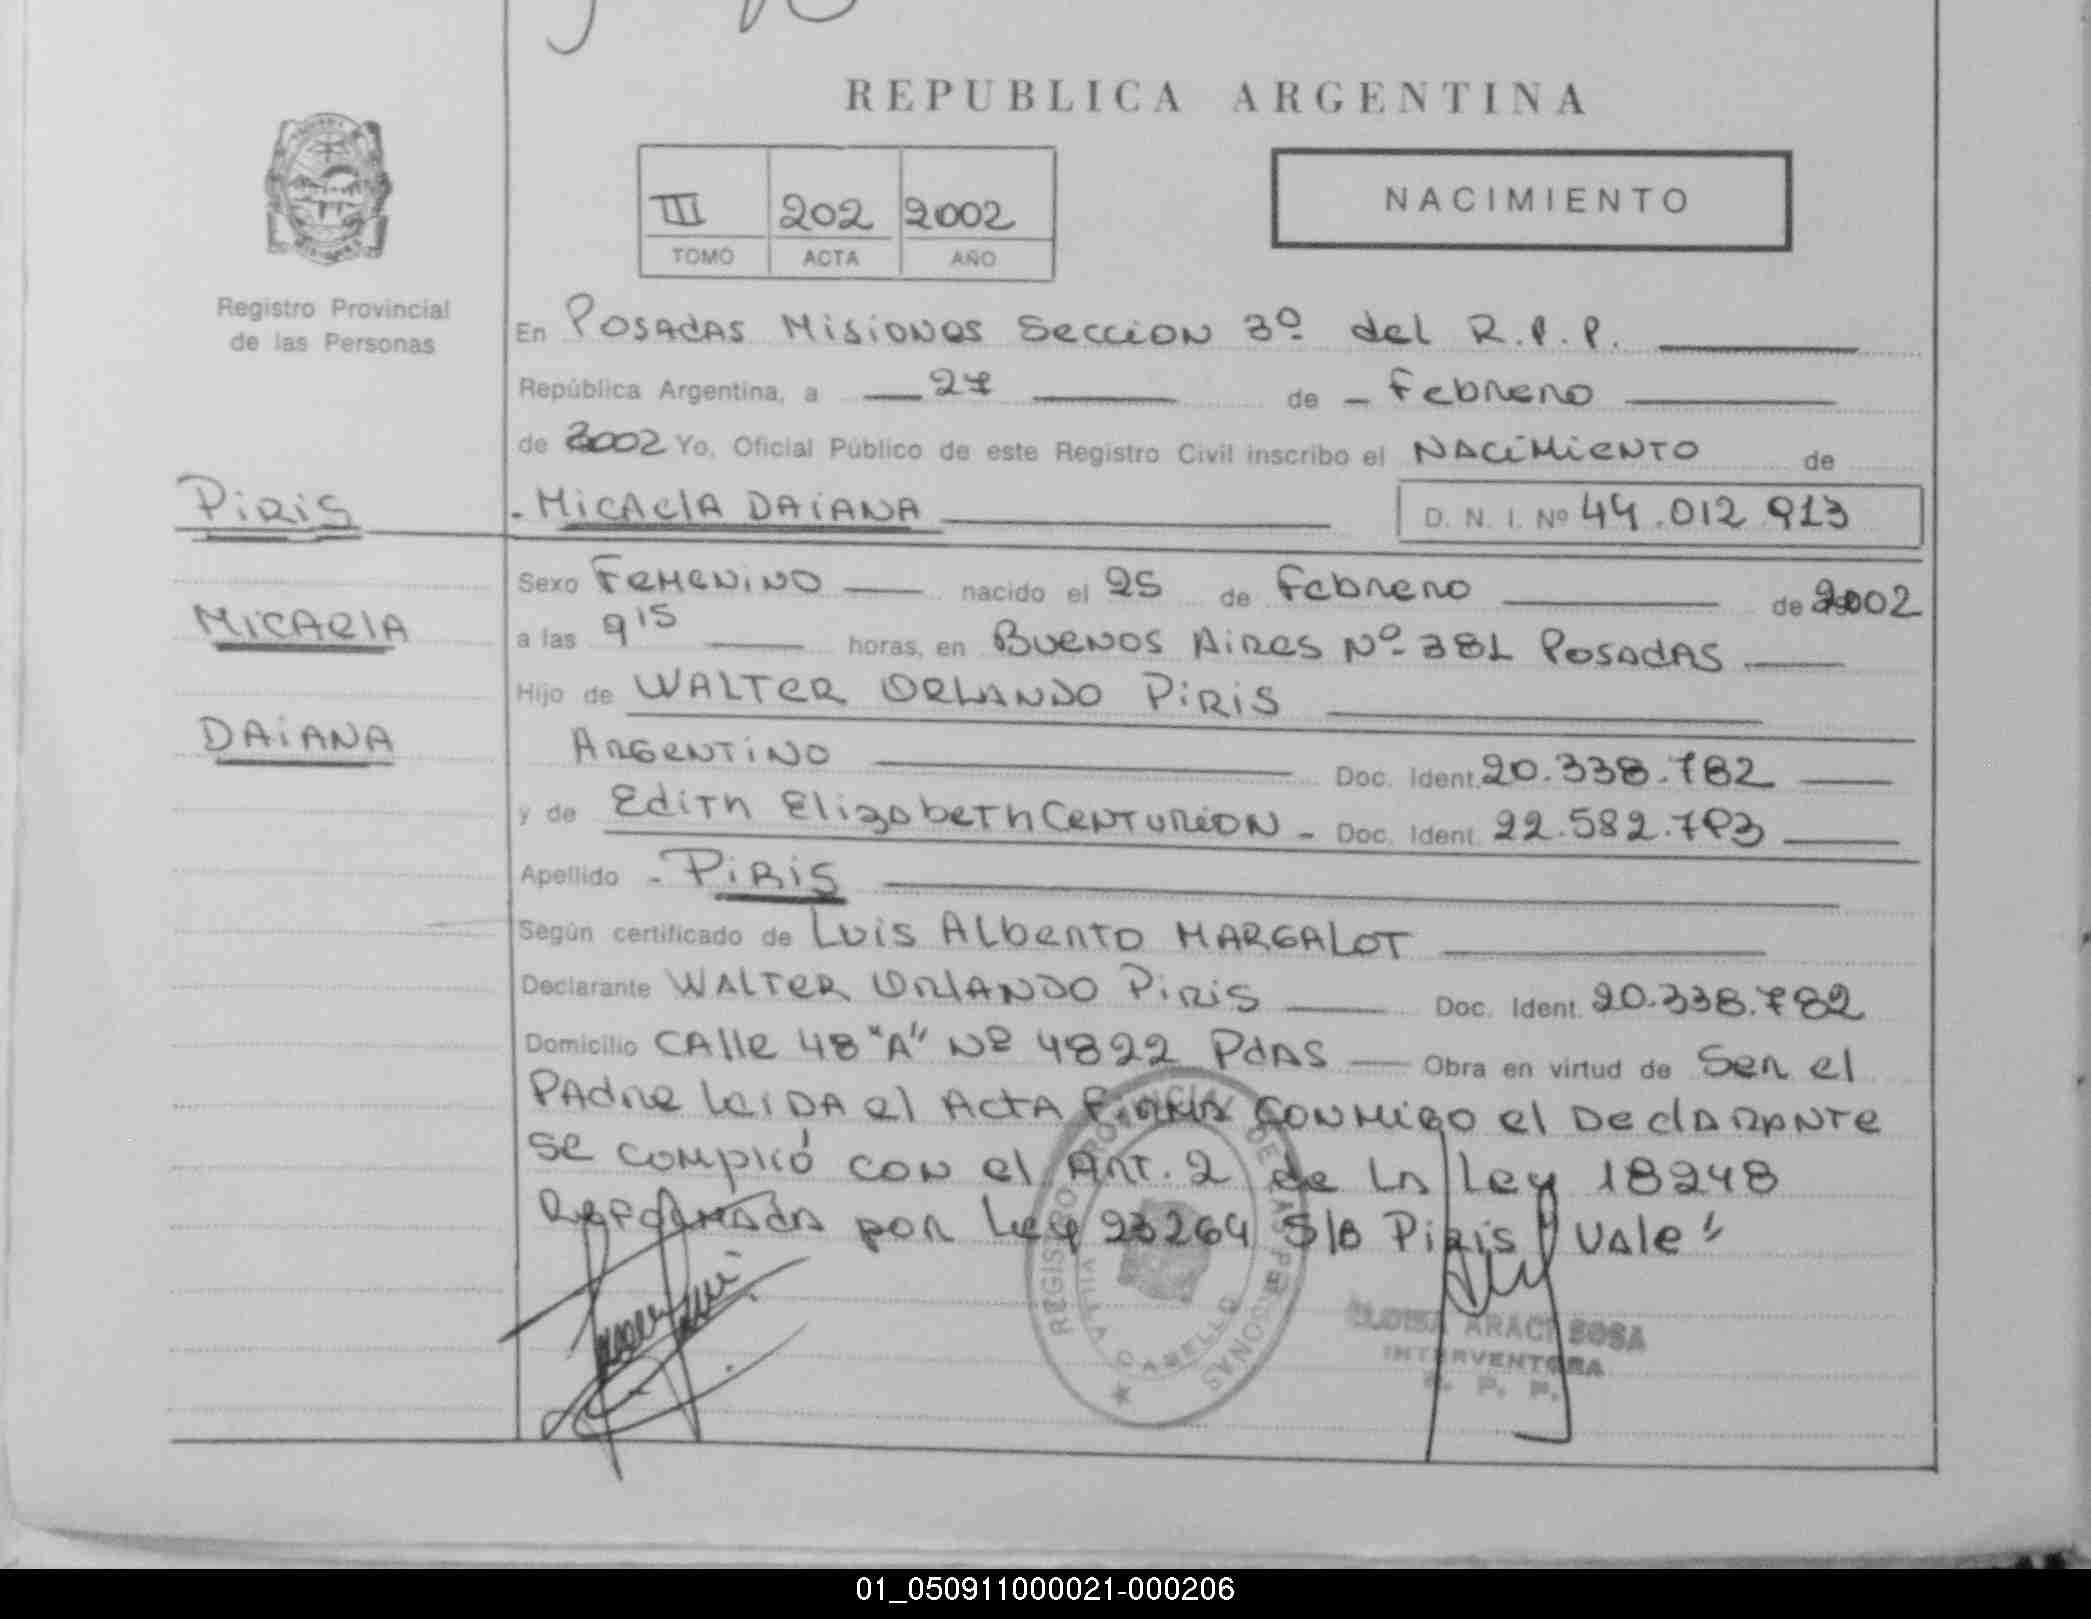 REPUBLICA ARGENTINA
III 202 2002
TOMO ACTA AÑO
NACIMIENTO
Registro Provincial
de las Personas
En Posadas Misiones Seccion 3º del R.P.P.
República Argentina, a 27 de Febrero
de 2002 Yo, Oficial Público de este Registro Civil inscribo el Nacimiento de
Piris
Micaela Daiana D. N. I. Nº 44.012.913
Sexo Femenino nacido el 25 de Febrero de 2002
Micaela
a las 9 15 horas, en Buenos Aires Nº 381 Posadas
Hijo de Walter Orlando Piris
Daiana
Argentino Doc. Ident. 20.338.782
y de Edith Elizabeth Centurion - Doc. Ident. 22.582.793
Apellido - Piris
Según certificado de Luis Alberto Margalot
Declarante Walter Orlando Piris Doc. Ident. 20.338.782
Domicilio Calle 48 "A" Nº 4822 Pdas Obra en virtud de Ser el
Padre leida el Acta Firma conmigo el Declarante
se complió con el Art. 2 de la Ley 18248
Reformada por Ley 23264 S/B Piris "Vale"
REGISTRO PROVINCIAL DE LAS PERSONAS
VILLA CABELLO
ARACI SOSA
INTERVENTORA
01_050911000021-000206